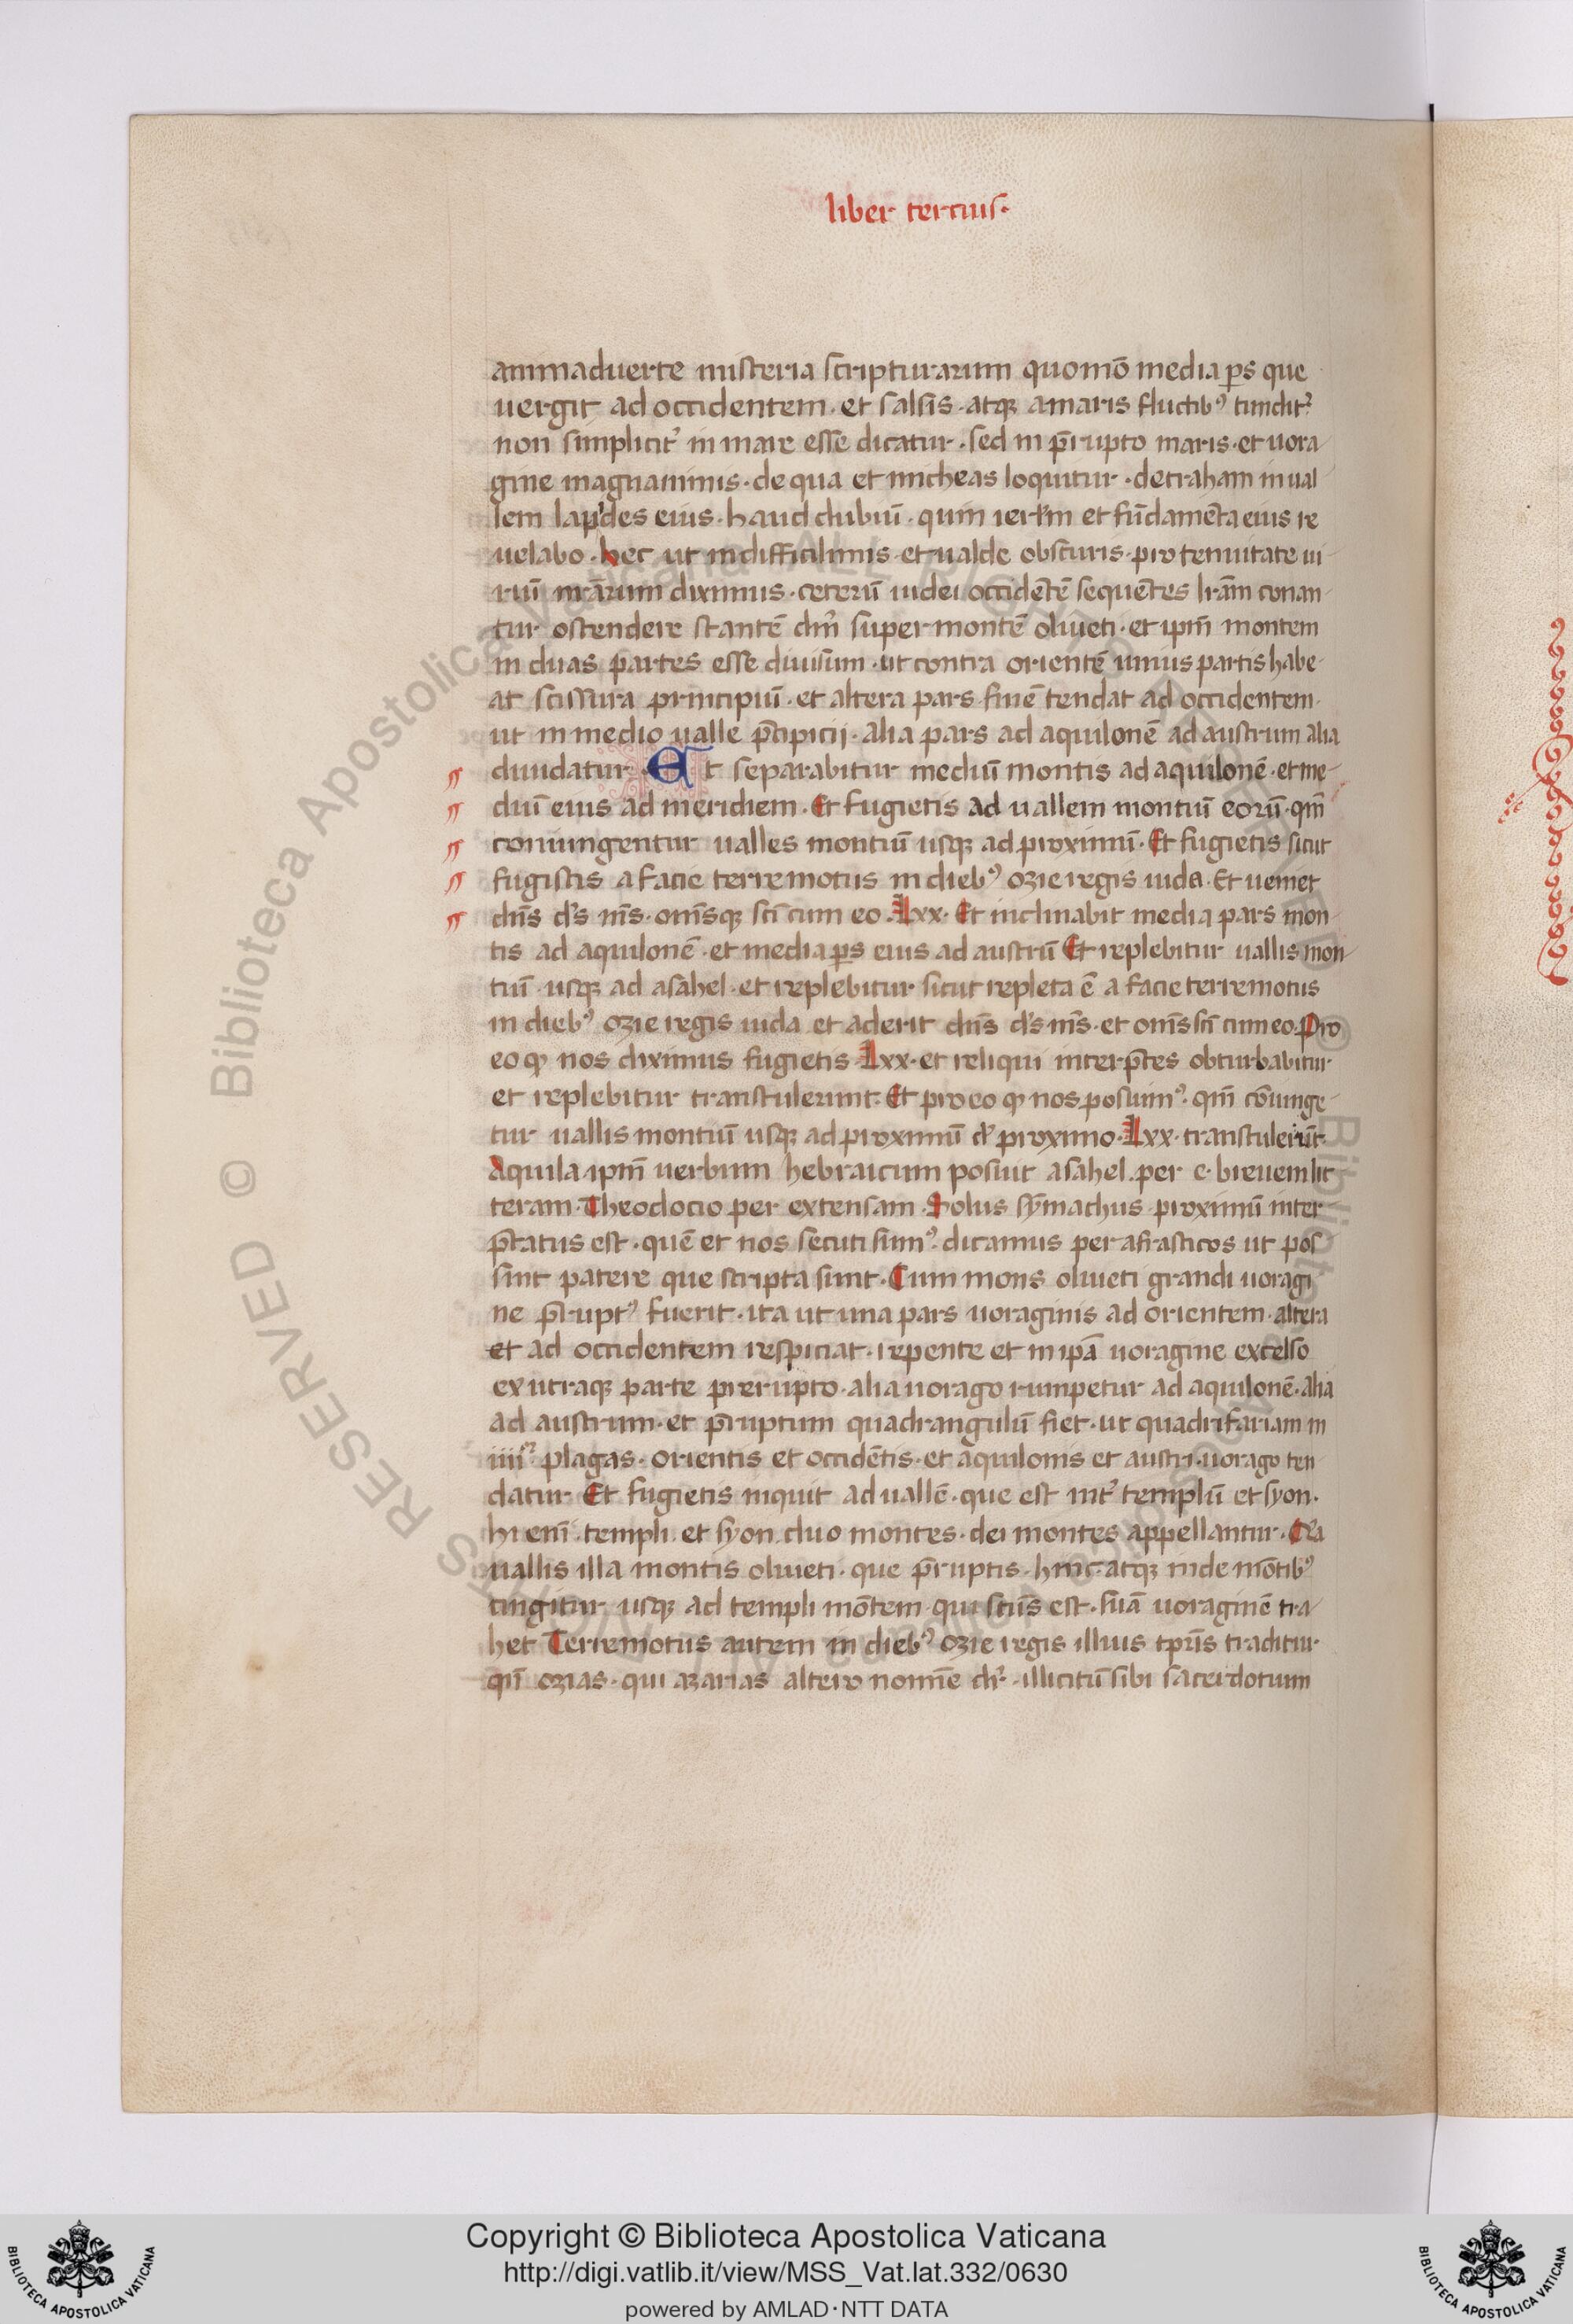 liber tercius·
animaduerte misteria scripturarum quomō media ꝑs que
uergit ad occidentem· et salsis· atqꝫ amaris fluctibꝰ tundit᷑
non simplicit᷑ in mare esse dicatur· sed in p̄rupto maris· et uora
gine magnanimis· de qua et micheas loquitur· detraham in ual
lem lapides eius· haud dubiū· quin ierl̄m et fūdamēta eius re
uelabo· hec ut in difficilimis· et ualde obscuris· pro tenuitate ui
riū nr̄arum diximus· ceterū iudei occidētē sequētes lr̄am conan
tur ostendere stantē dn̄m super montē oliueti· et ip̄m montem
in duas partes esse diuisum· ut contra orientē unius partis habe
at scissura principiū· et altera pars finē tendat ad occidentem·
ut in medio ualle p̄cipicij· alia pars ad aquilonē ad austrum alia
diuidatur· Et separabitur mediū montis ad aquilonē· et me
diū eius ad meridiem· Et fugietis ad uallem montiū eorū· qm̄
coniungentur ualles montiū usqꝫ ad proximū· Et fugietis sicut
fugistis a facie terremotus in diebꝰ ozie regis iuda· Et ueniet
dn̄s ds̄ ms̄· omīsqꝫ sc̄i cum eo· Lxx· Et inclinabit media pars mon
tis ad aquilonē· et media ꝑs eius ad austrū Et replebitur uallis mon
tiū usqꝫ ad asahel· et replebitur sicut repleta ē a facie terremotus
in diebꝰ ozie regis iuda et aderit dn̄s ds̄ ms̄· et omīs sc̄i cum eo· Pro
eo ꝙ nos diximus fugietis Lxx· et reliqui interp̄tes obturbabitur
et replebitur transtulerunt· Et pro eo ꝙ nos posuimꝰ· qm̄ cōiunge
tur uallis montiū usqꝫ ad proximū d᷑ proximo· Lxx· transtulerūt·
Aquila ip̄m uerbum hebraicum posuit asahel· per e· breuem lit
teram· Theodocio per extensam· Solus sȳmachus proximū inter
p̄tatus est· quē et nos secuti sumꝰ· dicamus perafrasticos ut pos
sint patere que scripta sunt· Cum mons oliueti grandi uoragi
ne p̄ruptꝰ fuerit· ita ut una pars uoraginis ad orientem· altera
et ad occidentem respiciat· repente et in ip̄a uoragine excelso
ex utraqꝫ parte prerupto· alia uorago rumpetur ad aquilonē· alia
ad austrum· et p̄ruptum quadrangulū fiet· ut quadrifariam in
iiiiᵒʳ plagas· orientis et occidētis· et aquilonis et austri· uorago ten
datur· Et fugietis inquit ad uallē· que est int᷑ templū et syon·
hi eni᷑ templi et syon duo montes· dei montes appellantur·
uallis illa montis oliueti· que p̄ruptis· hinc· atqꝫ inde mōtibꝰ
cingitur usqꝫ ad templi mōtem qui sc̄us est· suā uoraginē tra
het Terremotus autem in diebꝰ ozie regis illius tp̄ris traditur
qn̄ ozias· qui azarias altero nomīe dr᷑· illicitū sibi sacerdotium
Copyright © Biblioteca Apostolica Vaticana
http://digi.vatlib.it/view/MSS_Vat.lat.332/0630
powered by AMLAD·NTT DATA